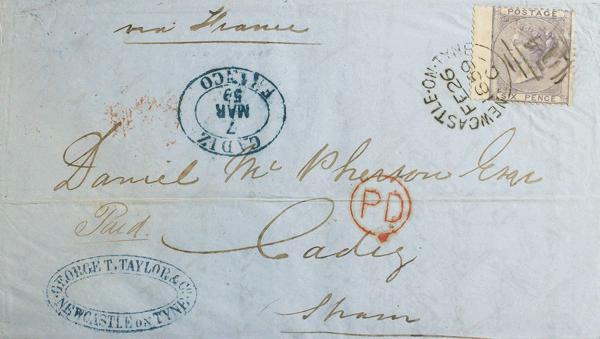 via France
POSTAGE
SIX PENCE
NEWCASTLE-ON-TYNE
FE 26
CADIZ
7
MAR
59
FRANCO
Daniel Mc Pherson Esqre
PD
Paid.
Cadiz
GEORGE T. TAYLOR & Co.
NEWCASTLE ON TYNE.
Spain